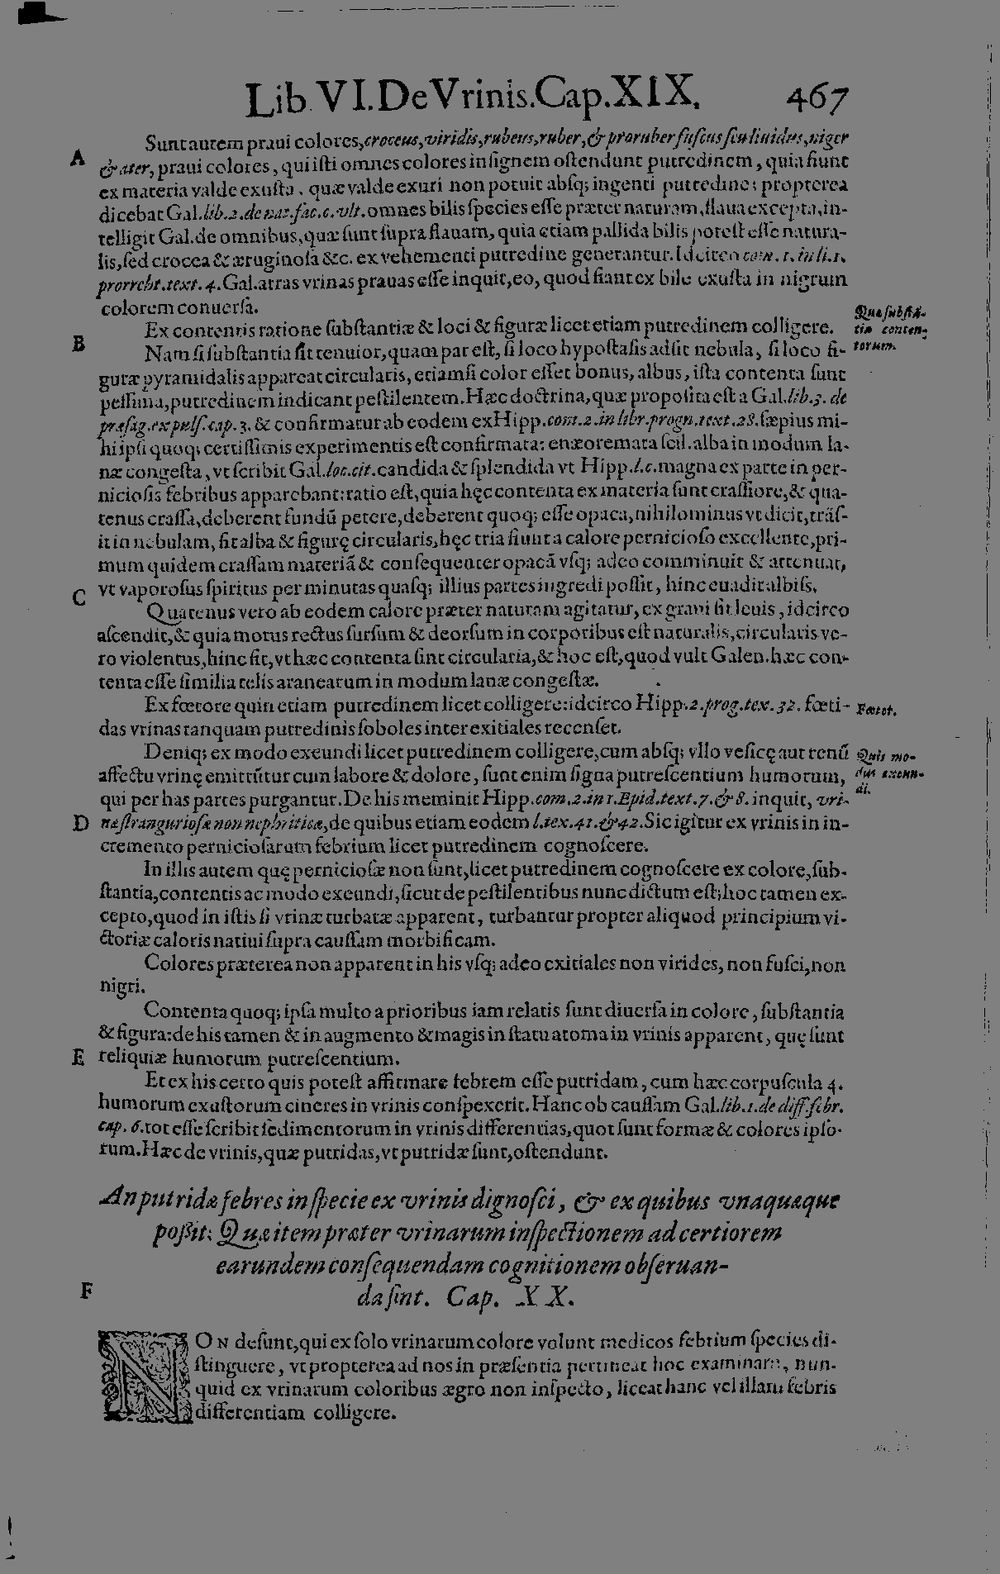 Lib. VI. De Vrinis. Cap. XIX. 467
A
Sunt autem praui colores, croceus, viridis, rubeus, ruber, & proruber fuscus seu liuidus, niger
& ater, praui colores, qui isti omnes colores insignem ostendunt putredinem, quia fiunt
ex materia valde exusta, quæ valde exuri non potuit absq; ingenti putredine; propterea
dicebat Gal. lib. 2. de nat. fac. c. vlt. omnes bilis species esse præter naturam, flaua excepta, in-
telligit Gal. de omnibus, quæ sunt supra flauam, quia etiam pallida bilis potest esse natura-
lis, sed crocea & æruginosa &c. ex vehementi putredine generantur. Idcirco com. 1. in li. 1.
prorrcht. text. 4. Gal. atras vrinas prauas esse inquit, eo, quod fiant ex bile exusta in nigrum
colorem conuersa.
Ex contentis ratione substantiæ & loci & figuræ licet etiam putredinem colligere.
Quæ substã-
tia conten-
torum.
B
Nam si substantia sit tenuior, quam par est, si loco hypostasis adsit nebula, si loco fi-
guræ pyramidalis appareat circularis, etiamsi color esset bonus, albus, ista contenta sunt
pessima, putredinem indicant pestilentem. Hæc doctrina, quæ proposita est a Gal. lib. 3. de
præsag. ex puls. cap. 3. & confirmatur ab eodem ex Hipp. com. 2. in libr. progn. text. 28. sæpius mi-
hi ipsi quoq; certissimis experimentis est confirmata: enæoremata scil. alba in modum la-
næ congesta, vt scribit Gal. loc. cit. candida & splendida vt Hipp. l. c. magna ex parte in per-
niciosis febribus apparebant: ratio est, quia hęc contenta ex materia sunt crassiore, & qua-
tenus crassa, deberent fundũ petere, deberent quoq; esse opaca, nihilominus vt dicit, trãs-
it in nebulam, fit alba & figurę circularis, hęc tria fiunt a calore pernicioso excellente, pri-
mum quidem crassam materiã & consequenter opacã vsq; adeo comminuit & attenuat,
vt vaporosus spiritus per minutas quasq; illius partes ingredi possit, hinc euadit albis.
C
Quatenus vero ab eodem calore præter naturam agitatur, ex graui fit leuis, idcirco
ascendit, & quia motus rectus sursum & deorsum in corporibus est naturalis, circularis ve-
ro violentus, hinc fit, vt hæc contenta sint circularia, & hoc est, quod vult Galen. hæc con-
tenta esse similia telis aranearum in modum lanæ congestæ.
Ex fœtore quin etiam putredinem licet colligere: idcirco Hipp. 2. prog. tex. 32. fœti-
Fœtor.
das vrinas tanquam putredinis soboles inter exitiales recenset.
Deniq; ex modo exeundi licet putredinem colligere, cum absq; vllo vesicę aut renũ
Quis mo-
dus exeun-
di.
affectu vrinę emittũtur cum labore & dolore, sunt enim signa putrescentium humorum,
qui per has partes purgantur. De his meminit Hipp. com. 2. in 1. Epid. text. 7. & 8. inquit, vri-
D
næ stranguriosæ non nephriticæ, de quibus etiam eodem l. tex. 41. & 42. Sic igitur ex vrinis in in-
cremento perniciosarum febrium licet putredinem cognoscere.
In illis autem quę perniciosæ non sunt, licet putredinem cognoscere ex colore, sub-
stantia, contentis ac modo exeundi, sicut de pestilentibus nunc dictum est; hoc tamen ex-
cepto, quod in istis si vrinæ turbatæ apparent, turbantur propter aliquod principium vi-
ctoriæ caloris natiui supra caussam morbificam.
Colores præterea non apparent in his vsq; adeo exitiales non virides, non fusci, non
nigri.
Contenta quoq; ipsa multo a prioribus iam relatis sunt diuersa in colore, substantia
& figura: de his tamen & in augmento & magis in statu atoma in vrinis apparent, quę sunt
E
reliquiæ humorum putrescentium.
Et ex his certo quis potest affirmare febrem esse putridam, cum hæc corpuscula 4.
humorum exustorum cineres in vrinis conspexerit. Hanc ob caussam Gal. lib. 1. de diff. febr.
cap. 6. tot esse scribit sedimentorum in vrinis differentias, quot sunt formæ & colores ipso-
rum. Hæc de vrinis, quæ putridas, vt putridæ sunt, ostendunt.
An putridæ febres in specie ex vrinis dignosci, & ex quibus vnaquæque
possit: Quæ item præter vrinarum inspectionem ad certiorem
earundem consequendam cognitionem obseruan-
F
da sint. Cap. XX.
NON desunt, qui ex solo vrinarum colore volunt medicos febrium species di-
stinguere, vt propterea ad nos in præsentia pertineat hoc examinare, nun-
quid ex vrinarum coloribus ægro non inspecto, liceat hanc vel illam febris
differentiam colligere.